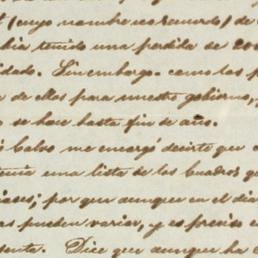 (cuyo nombre no recuerdo) de
bia tenido una perdida de 200
idado. Sin embargo, como los p
a de ellos para nuestro gobierno,
o se hace hasta fin de año.
Calvo me encargó decirte que
una lista de los Cuadros q
; por que aunque en el dia
as pueden variar, y es preciso
sente. Dice que aunque ha